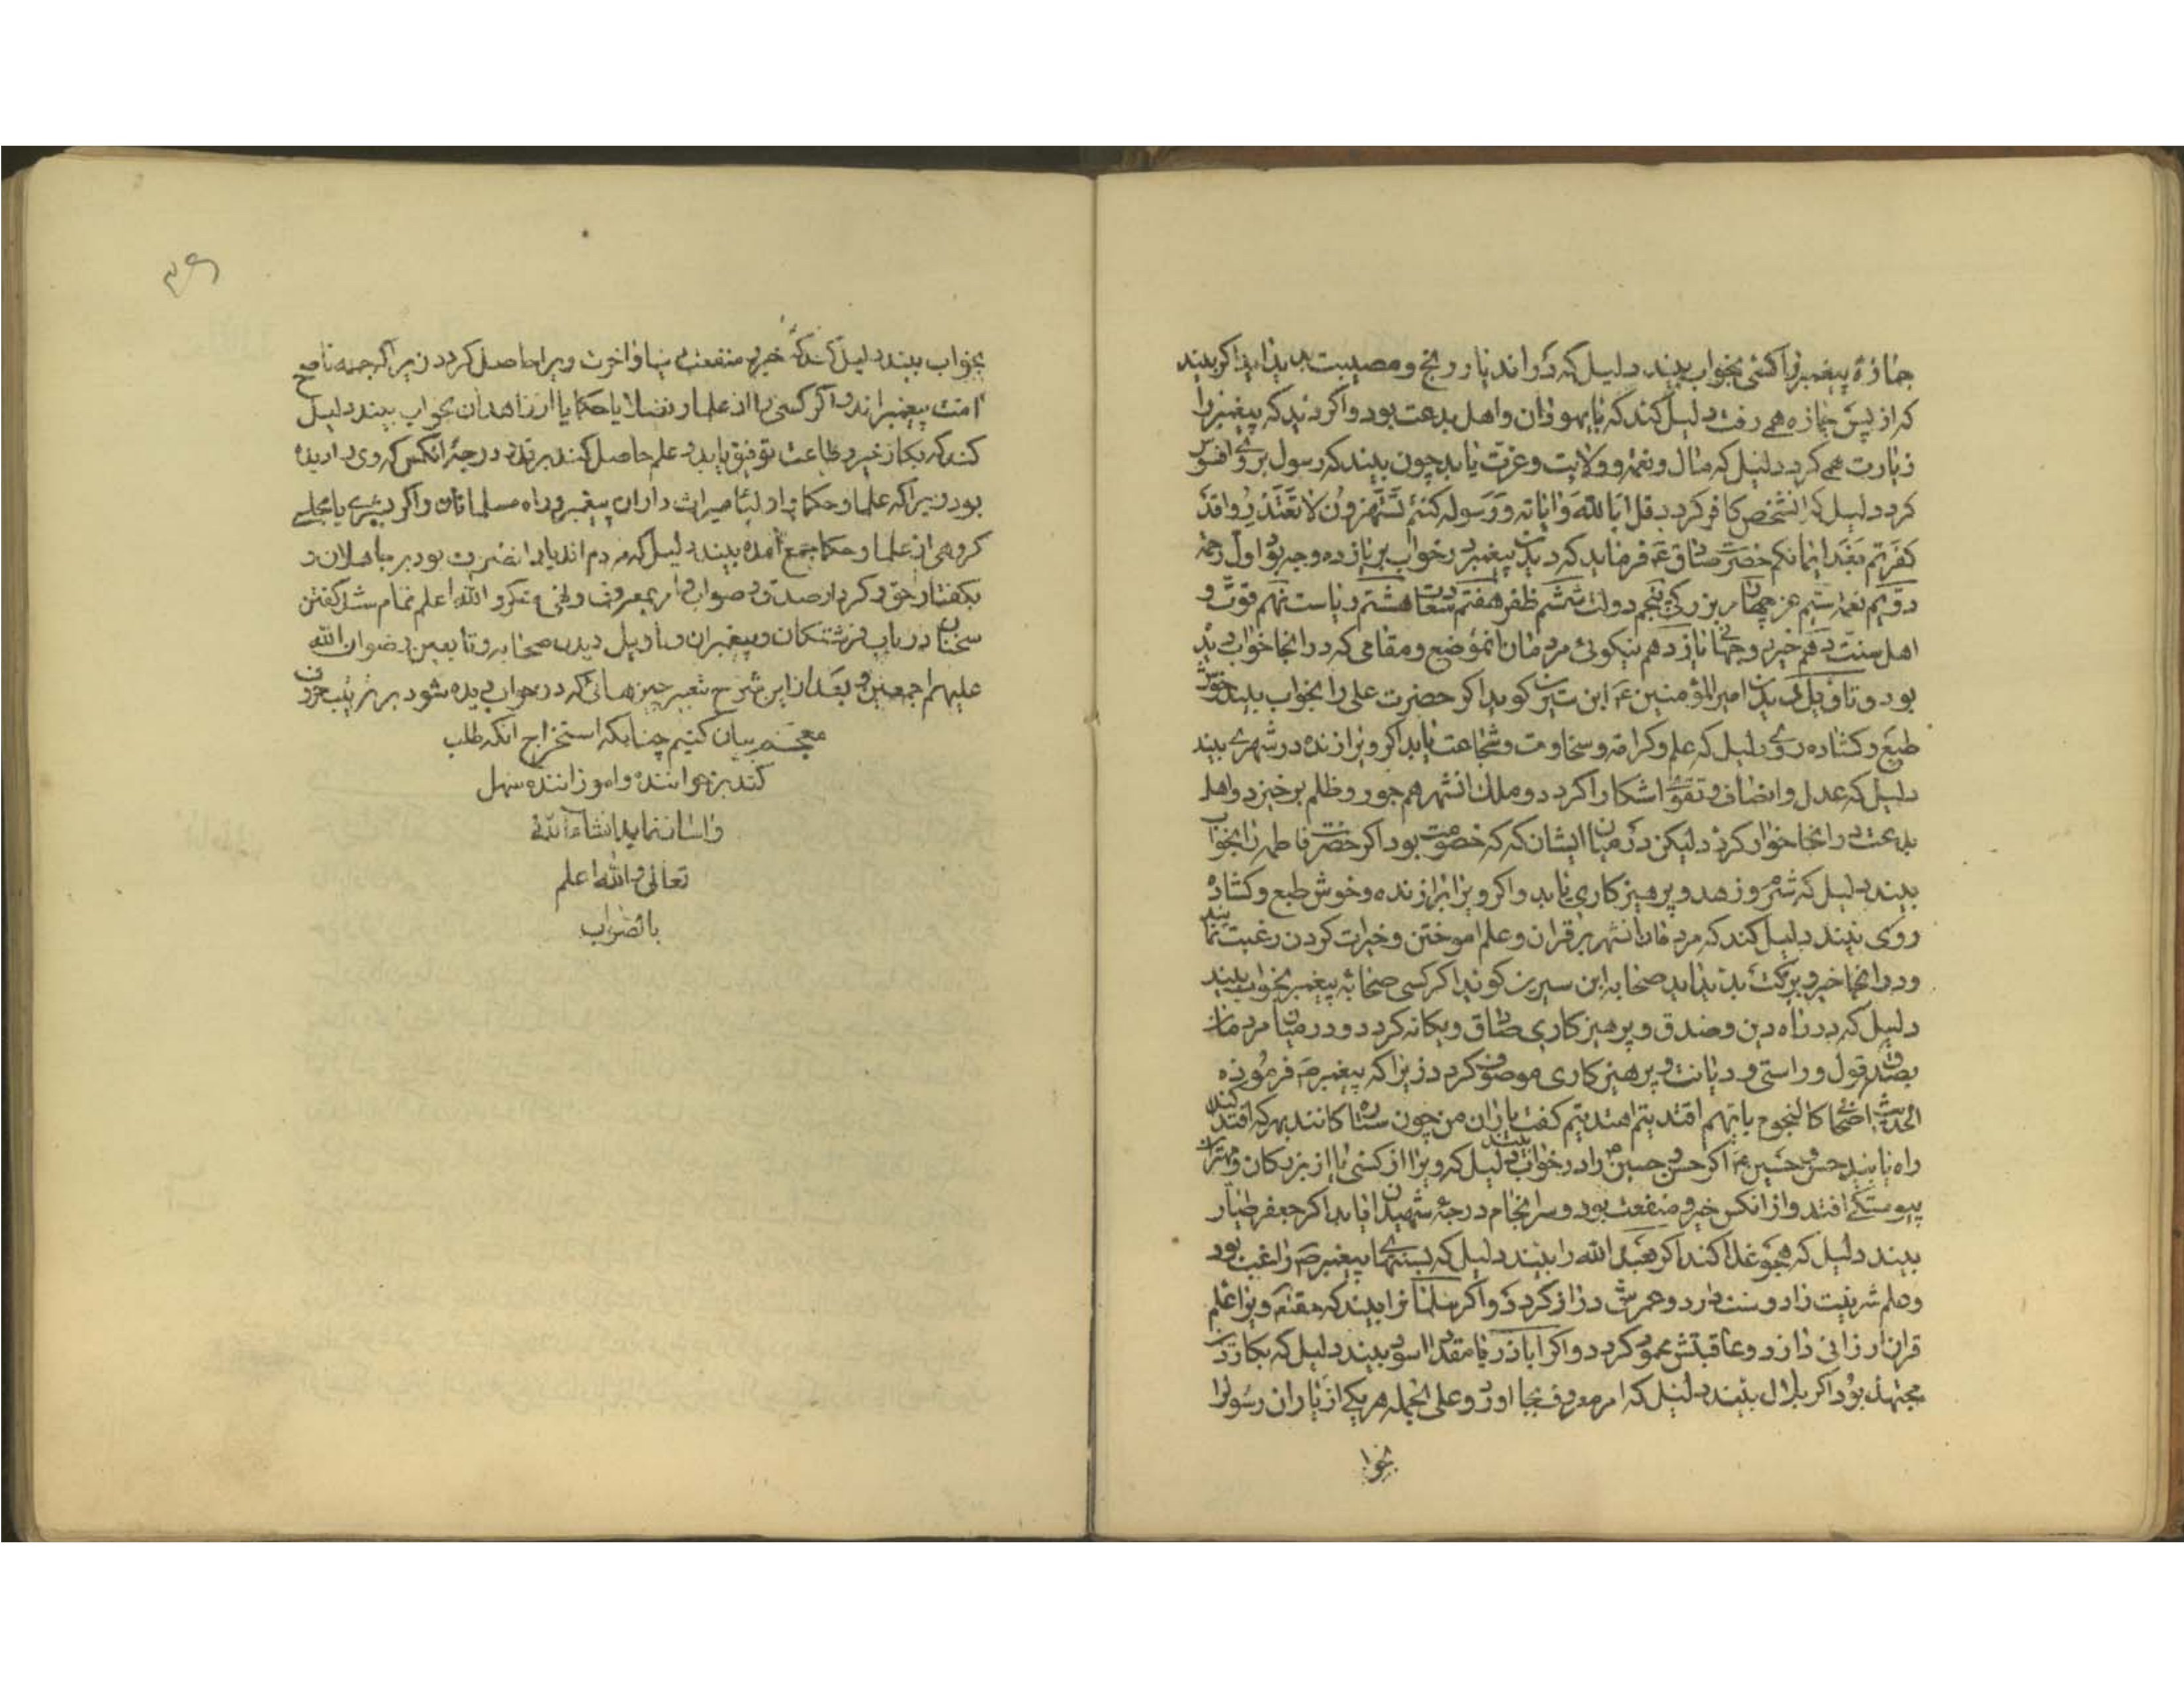 جنازهٔ پیغمبر را کسی بخواب بیند دلیل که در اندیار رنج و مصیبت پدید اید اگر بیند
که از پس جنازه همی رفت دلیل کند که با یهودان و اهل بدعت بود و اگر دید که پیغمبر را
زیارت همی کرد دلیل که مال و نعمة و ولایت و عزت یابد چون بیند که رسول بر وی افسوس
کرد دلیل که انشخص کافر کردد قل ابالله و ایاته و رسوله کنتم تستهزون لا تعتذروا قد
کفرتم بعد ایمانکم حضرت صادق ع فرماید که دیدن پیغمبر در خواب بر یازده وجه بود اول رحمة
دویم نعمة سیم عز چهارم بزرکی پنجم دولت ششم ظفر هفتم سعادت هشتم ریاست نهم قوت
اهل سنت دهم خیر دو جهانی یازدهم نیکوئی مردمان انموضع و مقامی که در انجا خواب دید
بود و تاویل دیدن امیرالمؤمنین ع ابن سیرین کوید اکر حضرت علی را بخواب بیند خوش
طبع و کشاده روی دلیل که علم و کرامة و سخاوت و شجاعت یابد اکر ویرا زنده در شهری بیند
دلیل که عدل و انصاف و تقوی اشکارا کردد و ملک انشهر هم جور و ظلم برخیزد و اهل
بدعت در انجا خوار کردد لیکن در میان ایشان که خصومت بود اکر حضرت فاطمه را بخواب
بیند دلیل که شرم و زهد و پرهیزکاری یابد و اکر ویرا زنده و خوش طبع و کشاده
روی بیند دلیل کند که مردمان انشهر بر قران و علم اموختن و خیرات کردن رغبت نمایند
و در انجا خیر و برکت پدید اید صحابه ابن سیرین کوید اکر کسی صحابهٔ پیغمبر بخواب بیند
دلیل که در راه دین و صدق و پرهیزکاری صادق و یکانه کردد و در میان مردمان
بصدق قول و راستی و دیانت و پرهیزکاری موصوف کردد زیرا که پیغمبر ص فرموده
الحدیث اصحابی کالنجوم بایهم اقتدیتم اهتدیتم کفت یاران من چون ستارکانند بهرکه اقتدا کنید
راه یابید حسن و حسین ع اکر حسن و حسین را در خواب بیند دلیل که ویرا از کسی یا از بزرکان و مهتران
پیوستکی افتد و از انکس خیر و منفعت بود و سرانجام درجهٔ شهیدان یابد اکر جعفر طیار
بیند دلیل که حج و غزا کند اکر عبدالله را بیند دلیل که بسنتهای پیغمبر ص راغب بود
و علم شریعت را دوست دارد و عمرش دراز کردد و اکر سلمانرا بیند که ویرا علم
قران ارزانی دارد و عاقبتش محمود کردد و اکر اباذر یا مقداد اسود بیند دلیل که بکار دین
مجتهد بود اکر بلال بیند دلیل که امر معروف بجا اورد و علی الجمله هر یکی از یاران رسول را
بخوا
۳۶
بخواب بیند دلیل کند که خیر و منفعت دنیا و اخرت ویرا حاصل کردد زیرا که جمله ناصح
امت پیغمبر اند و اکر کسی را از علما و فضلا یا حکما یا از زاهدان بخواب بیند دلیل
کند که بکار خیر و طاعت توفیق یابد و علم حاصل کند بر درجهٔ انکس که وی را دیده
بود زیرا که علما و حکما و اولیا میراث داران پیغمبر و راه مسلمانان و اکر در شهری یا محلی
کروهی از علما و حکما جمع امده بیند دلیل که مردم اندیار را نصرت بود بر جاهلان و
بکفتار حق و کردار صدق و صواب و امر بمعروف و نهی منکر و الله اعلم تمام شد کفتن
سخنان در باب فرشتکان و پیغمبران و تاویل دیدن صحابه و تابعین رضوان الله
علیهم اجمعین و بعد از این شرح تعبیر چیزهائی که در خواب دیده شود بر ترتیب حروف
معجم بیان کنیم چنانکه استخراج انکه طلب
کند بر خواننده و اموزاننده سهل
و اسان نماید انشاء الله
تعالی و الله اعلم
بالصواب